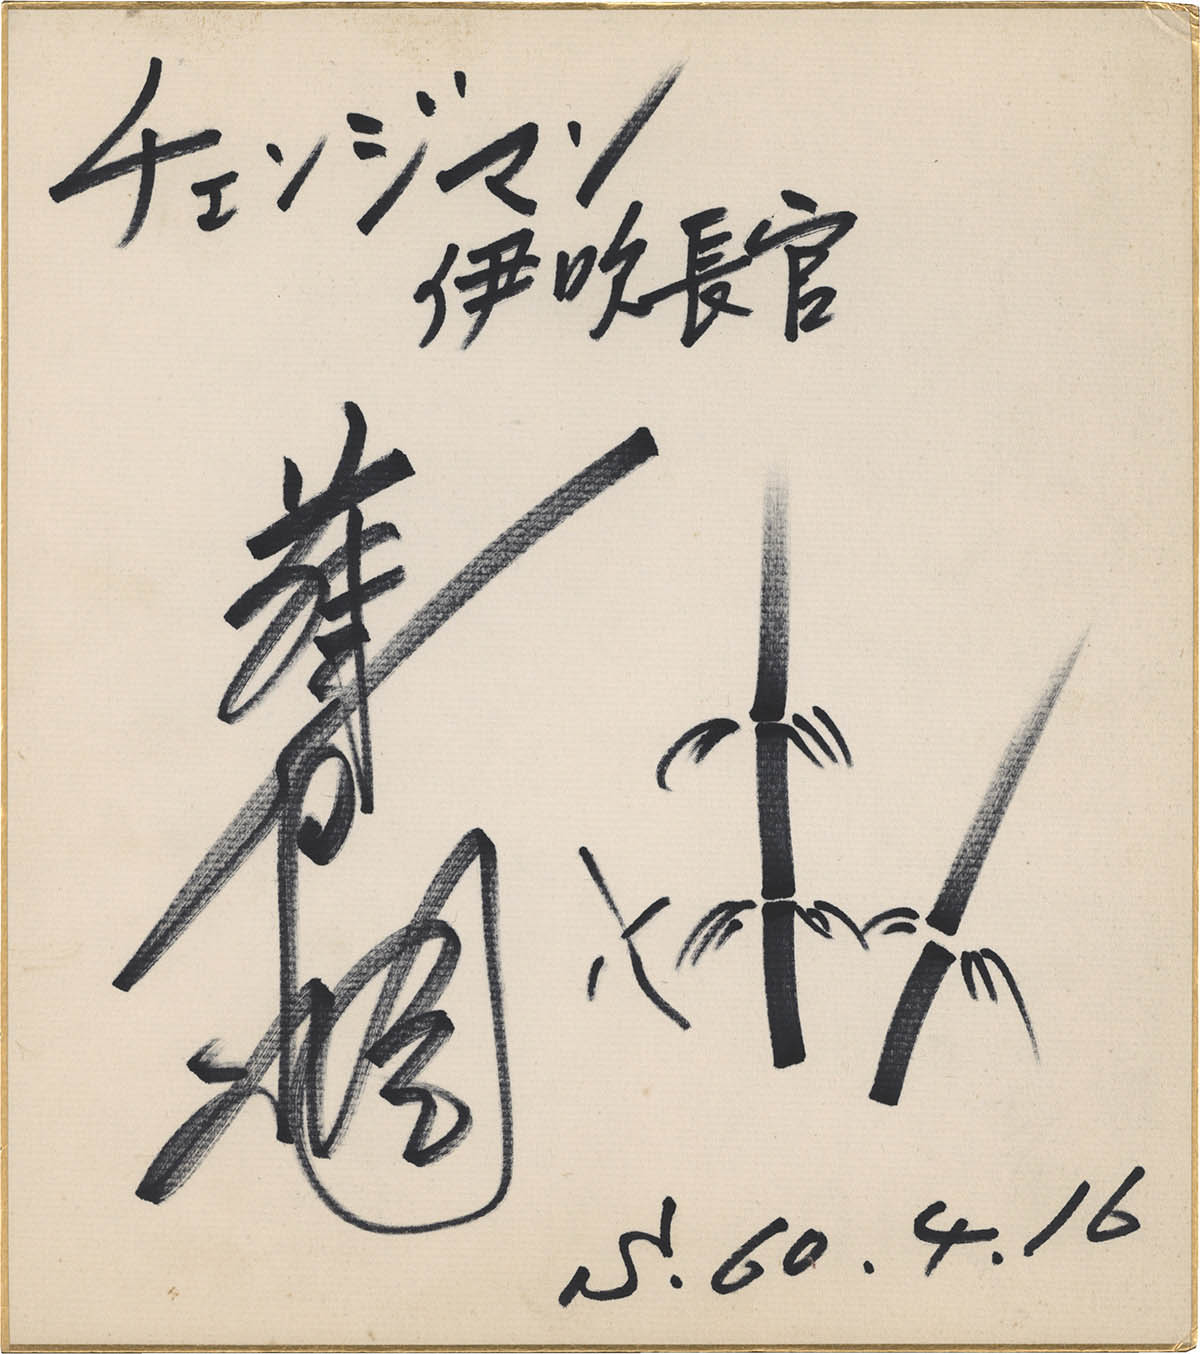 チェンジマン
伊吹長官
S.60.4.16